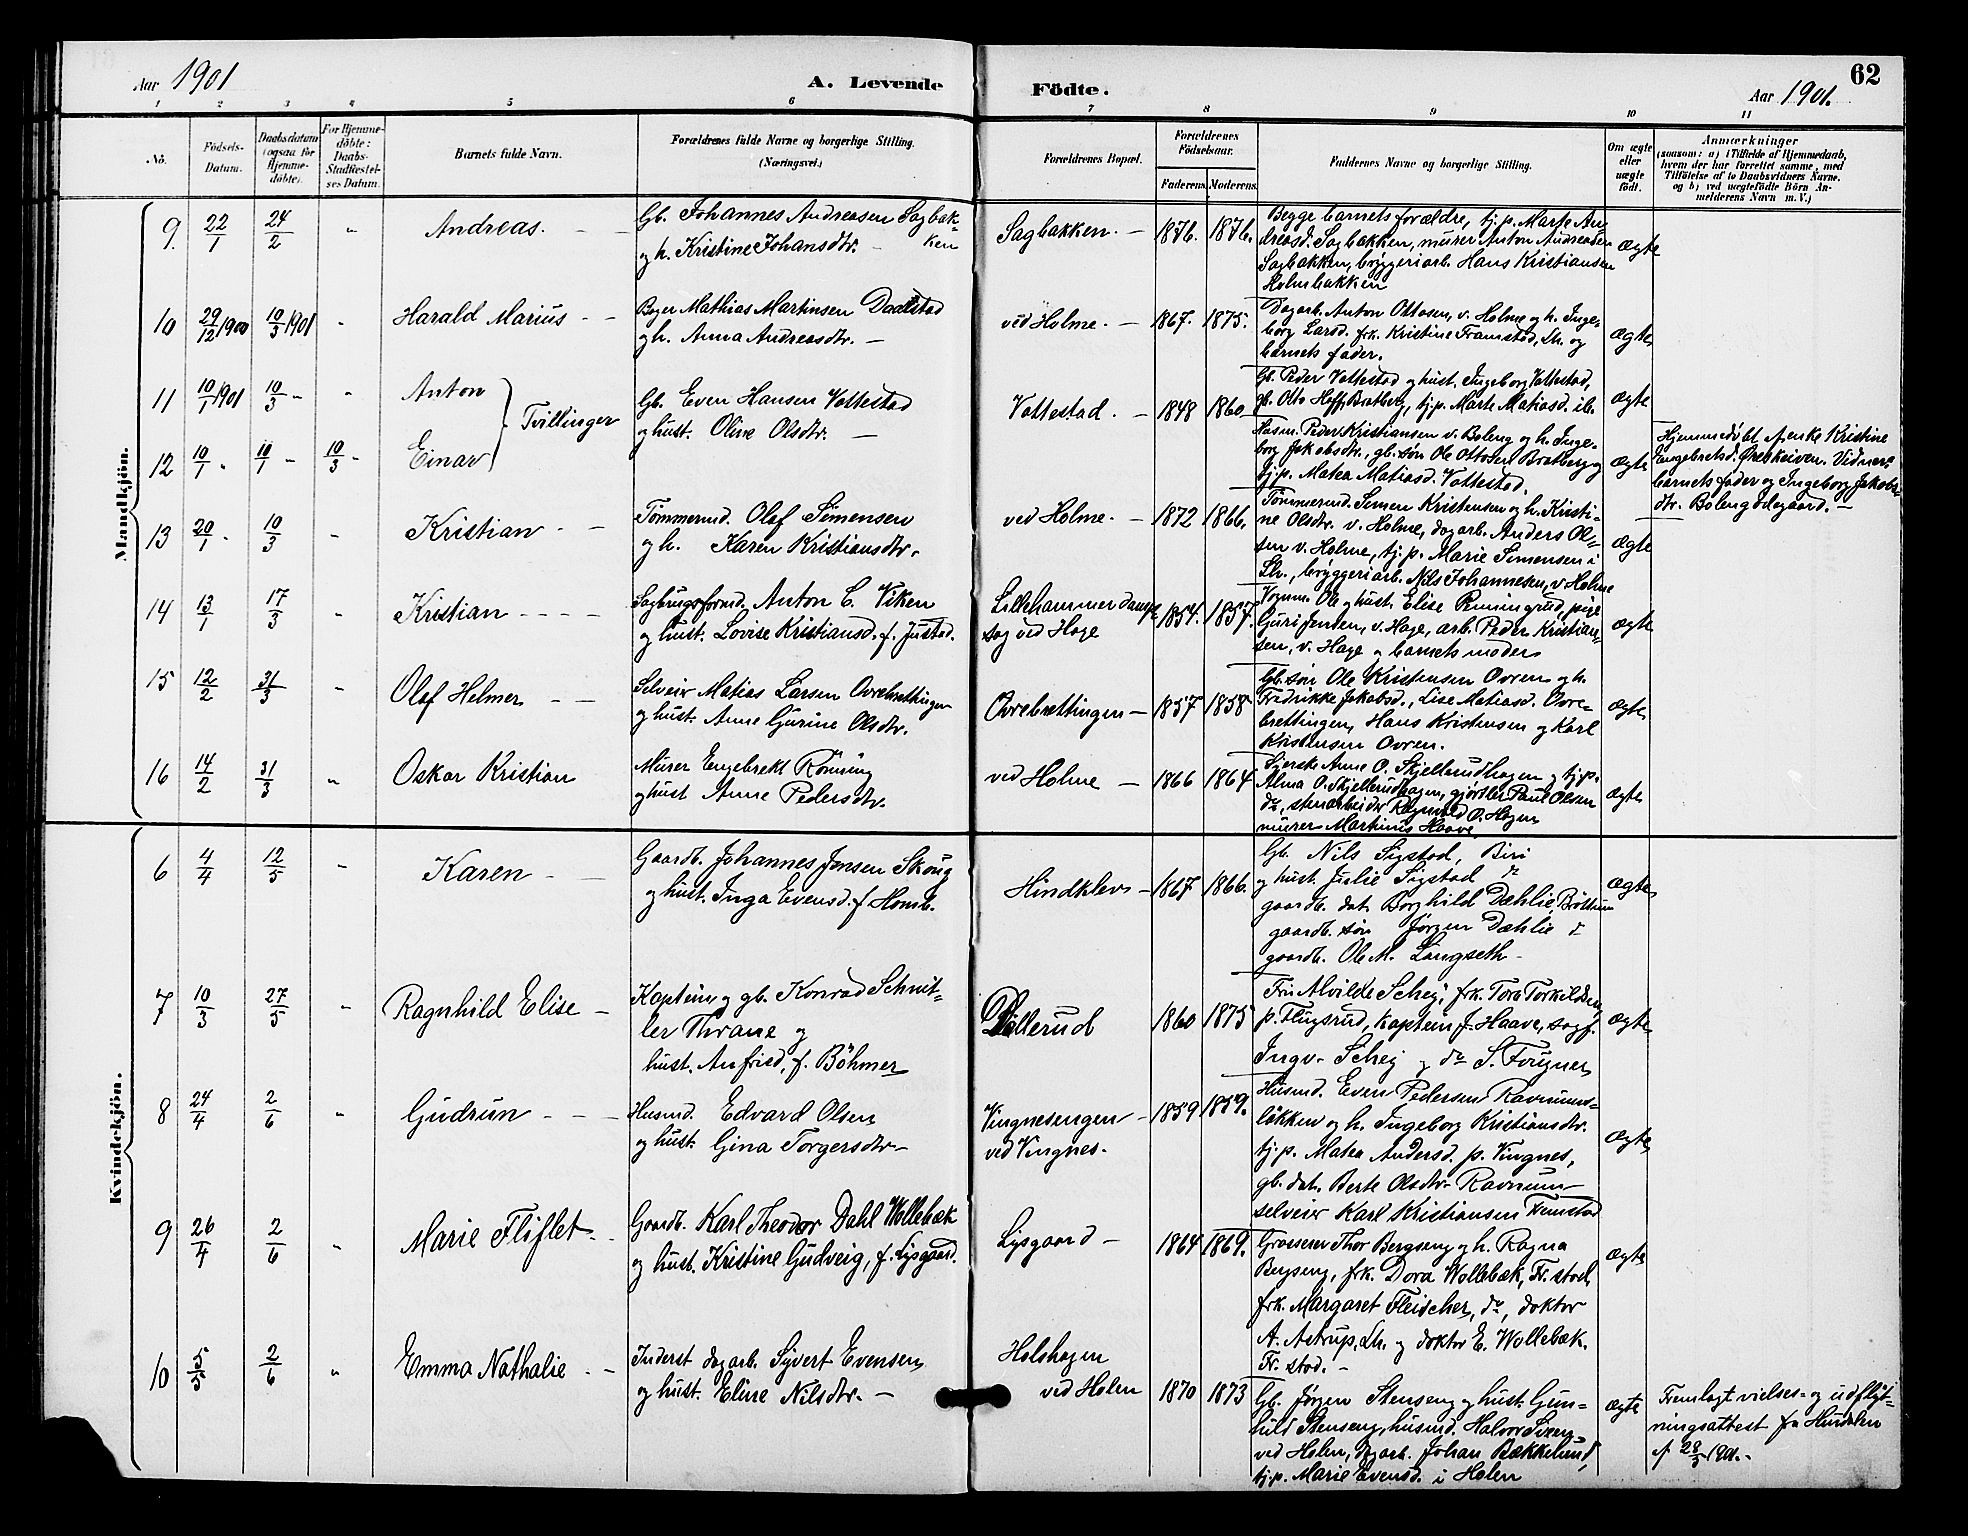 Aar 1901
A. Levende
Födte.
Aar 1901.
62
1 2 3 4 5 6 7 8 9 10 11
No.
Födsels-
Datum.
Daabsdatum
(ogsaa for
Hjemme-
döbte).
For Hjemme-
döbte:
Daabs-
Stadfæstel-
ses Datum.
Barnets fulde Navn.
Forældrenes fulde Navne og borgerlige Stilling.
(Næringsvei.)
Forældrenes Bopæl.
Forældrenes
Födselsaar.
Faderens. Moderens.
Faddernes Navne og borgerlige Stilling.
Om ægte
eller
uægte
födt.
Anmærkninger
(saasom: a) i Tilfælde af Hjemmedaab,
hvem der har forrettet samme, med
Tilföielse af to Daabsvidners Navne,
og b) ved uægtefödte Börn An-
melderens Navn m. V.)
Mandkjön.
9. 22/1 24/2 " Andreas.
Gb. Johannes Andreasen Sagbak-
ken
og h. Kristine Johansdtr.
Sagbakken. 1876. 1876.
Begge barnets forældre, tj.p. Marte An-
dreasd. Sagbakken, murer Anton Andreasen
Sagbakken, bryggeriarb. Hans Kristiansen
Holmbakken
Ægte
10 29/12 1900 10/3 1901 " Harald Marius
Mathias Martinsen
og h. Anna Andreasdtr.
ved Holme. 1867. 1875.
Dagarb. Anton Ottosen, v. Holme og h. Inge-
borg Larsd. frk. Kristine Framstad, Lh. og
barnets fader.
Ægte
11 10/1 1901 10/3 " Anton
Tvillinger
Gb. Even Hansen Vattestad
og hust. Oline Olsdtr.
Vattestad. 1848 1860
Gb. Peder Vattestad og hust. Ingeborg Vattestad,
gb. Otto Hoff, Bratberg, tj.p. Marte Matiasd. ib.
Ægte
12 10/1 10/1 10/3 Einar
Husm. Peder Kristiansen v. Boleng og h. Inge-
borg Jakobsdtr., gb.søn Ole Ottosen Bratberg og
tj.p. Matea Matiasd. Vattestad.
Ægte
Hjemmedøbt af enke Kristine
Engebretsd. Vidner:
barnets fader og Ingeborg Jakobs-
dtr. Boleng
13 20/1 10/3 " Kristian
Tømmermd. Olaf Simensen
og h. Karen Kristiansdtr.
ved Holme. 1872 1866.
Tømmermd. Simen Kristensen og h. Kristi-
ne Olsdtr. v. Holme, dagarb. Anders Ol-
sen v. Holme, tj.p. Marie Simensen i
Lh., bryggeriarb. Nils Johannesen, v. Holme
Ægte
14 13/1 17/3 " Kristian
Sagbrugsformd. Anton C. Viken
og hust. Lovise Kristiansd. f. Justad.
Lillehammer damp-
sag ved Hage
1854. 1857.
Vognm. Ole og hust. Elise pige
Guri Jensen, v. Hage, arb. Peder Kristian-
sen, v. Hage og barnets moder
Ægte
15 12/2 31/3 " Olaf Helmer
Selveier Matias Larsen Ovrebrettingen
og hust. Anne Gurine Olsdtr.
Ovrebrettingen 1857 1858
Gb. søn Ole Kristensen Ovren og h.
Fredrikke Jakobsd., Lise Matiasd. Ovre-
brettingen, Hans Kristensen og Karl
Kristensen Ovren.
Ægte
16 14/2 31/3 " Oskar Kristian
Murer Engebrekt Rønsing
og hust Anne Pedersdtr.
ved Holme 1866 1864
Anne O. Skjellerudhagen og tj.p.
Alma O. Skjellerudhagen, gjørtler Paul Olsen
do, stenarbeider Ragnvald O. Hagen
murer Martinus Haave
Ægte
Kvindekjön.
6 4/4 12/5 " Karen
Gaardb. Johannes Jensen Skoug
og hust. Inga Evensd. f. Homb.
Hindklev 1867 1866.
Gb. Nils Sigstad, Biri
og hust. Julie Sigstad do
gaardb. dat. Borghild Dæhlie, Brøttum
gaardb. søn Jørgen Dæhlie do
gaardb. Ole M. Langseth
Ægte
7 10/3 27/5 " Ragnhild Elise
Kaptein og gb. Konrad Schnit-
ler Thrane og
hust. Anfried, f. Böhmer
Döllerud 1860 1875
Fru Alvilde Schej, frk. Tora Torkildsen,
p. Flugsrud, kaptein J. Haave, sagf.
Ingv. Schej og do S. Fougner
Ægte
8 24/4 2/6 " Gudrun
Husmd. Edvard Olsen
og hust. Gina Torgersdtr
Vingnesengen
ved Vingnes.
1859 1859.
Husmd. Even Pedersen Ravnums-
løkken og h. Ingeborg Kristiansdtr.
tj.p. Matea Andersd. p. Vingnes,
gb. dat. Berte Olsdtr Ravnum
selveier Karl Kristiansen Femstad
Ægte
9 26/4 2/6 " Marie Fliflet
Gaardb. Karl Theodor Dahl Wollebæk
og hust. Kristine Gudveig, f. Lysgaard.
Lysgaard 1864 1869.
Grosserer Thor Bergseng og h. Ragna
Bergseng, frk. Dora Wollebæk, Fr.stad,
frk. Margaret Fleischer, do, doktor
A. Astrup, Lh. og doktor E. Wollebæk.
Fr. stad.
Ægte
10 5/5 2/6 " Emma Nathalie
Inderst dagarb. Syvert Evensen
og hust. Eline Nilsdtr.
Holshagen
ved Holen
1870 1873
Gb. Jørgen Stenseng og hust. Gun-
hild Stenseng, husmd. Halvor Sveen
ved Holen, dagarb. Johan Bækkelund,
tj.p. Marie Evensd. i Holen
Ægte
Fremlagt vielses- og udflyt-
ningsattest fra Hurdalen
af 28/5 1901.